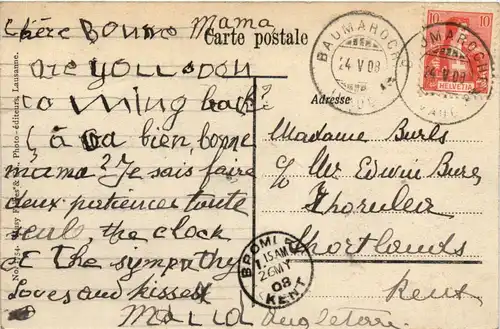 Chère Bonne Mama
Carte postale
are you soon
coming back?
Ça va bien, bonne
mama? Je sais faire
deux patiences toute
seule the clock
et the sympathy
Loves and kisses
Adresse
Madame Burls
c/o Mr Edwin Burls
Shortlands
Kent
Angleterre
BAUMAROCHE
24 V 08
VAUD
10 10
HELVETIA
BAUMAROCHE
24 V 08
VAUD
BROMLEY
7.15AM
26 MY
08
KENT
Photo-éditeurs, Lausanne.